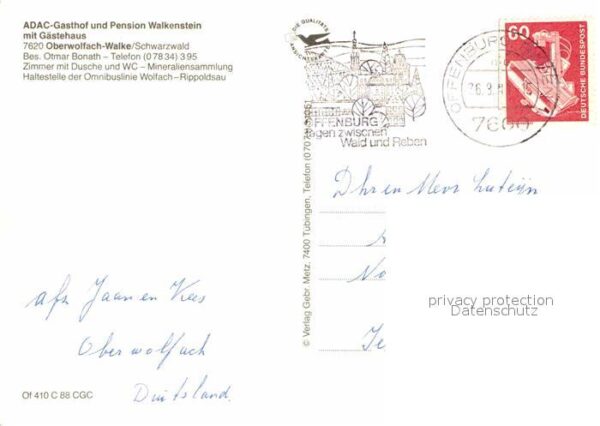 ADAC-Gasthof und Pension Walkenstein
mit Gästehaus
7620 Oberwolfach-Walke/Schwarzwald
Bes. Otmar Bonath – Telefon (07834) 395
Zimmer mit Dusche und WC – Mineraliensammlung
Haltestelle der Omnibuslinie Wolfach–Rippoldsau
DIE QUALITÄTS
ANSICHTSKARTE
OFFENBURG
zwischen
Wald und Reben
OFFENBURG
7600
60
DEUTSCHE BUNDESPOST
© Verlag Gebr. Metz, 7400 Tübingen, Telefon
Mevr
No
privacy protection
Datenschutz
afz Jaan en Kees
Oberwolfach
Duitsland.
Of 410 C 88 CGC